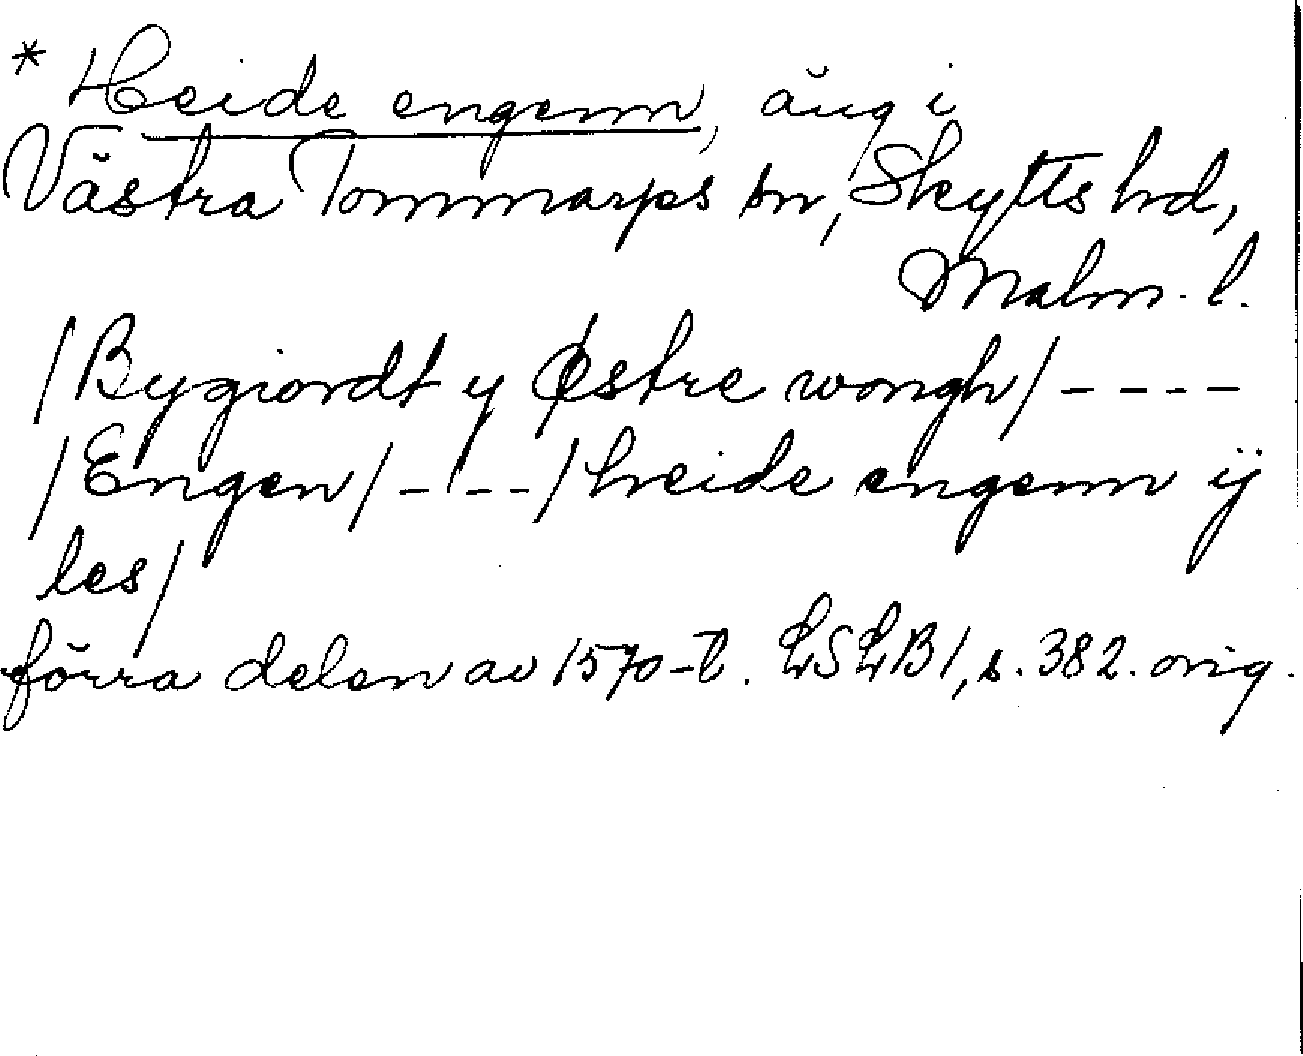 * Heide engenn, äng i
Västra Tommarps sn, Skytts hd,
Malm. l.
/Bygiordt y Østre wongh/ ----
/Engen/ ----/heide engenn ij
les/
förra delen av 1570-t. LSLB1, s. 382. orig.